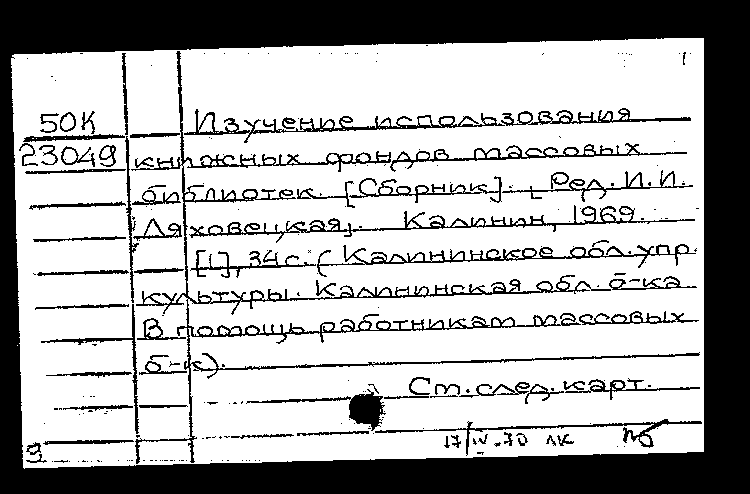 1
50К Изучение использования
23049 книжных фондов массовых
библиотек. [Сборник]. [Ред. И.И.
Ляховецкая]. Калинин, 1969.
[1], 34 с. (Калининское обл. упр.
культуры. Калининская обл. б-ка
В помощь работникам массовых
б-к).
Ст. след. карт.
9 17/IV.70 ЛК